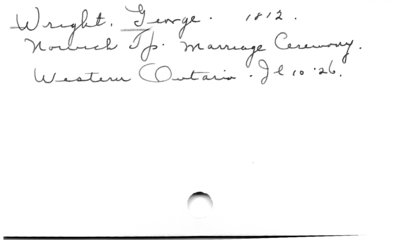 Wright, George. 1812.
Norwich Tp. Marriage Ceremony.
Western Ontario. Je 10 '26.